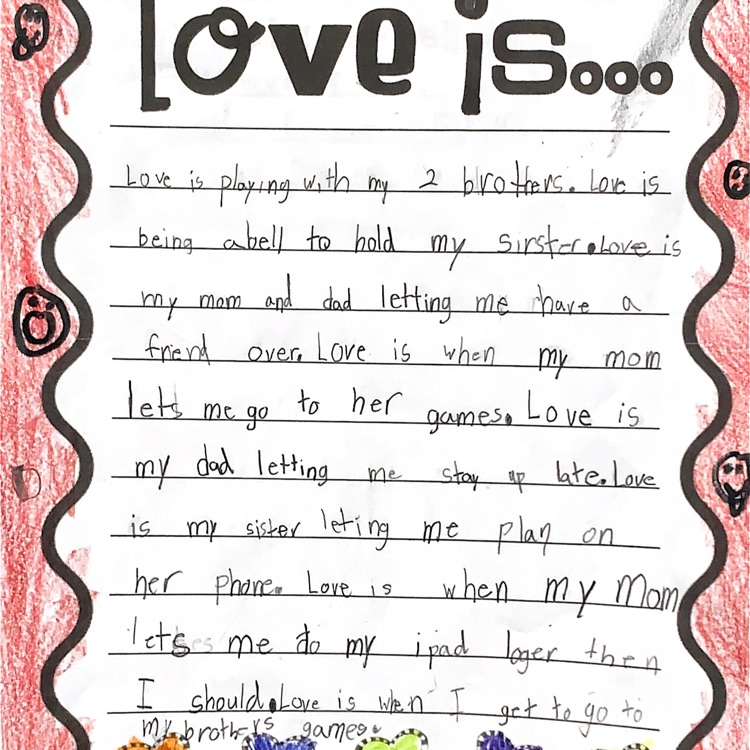 Love is...
Love is playing with my 2 brothers. Love is
being abell to hold my sirster. Love is
my mom and dad letting me have a
friend over. Love is when my mom
lets me go to her games. Love is
my dad letting me stay up late. Love
is my sister leting me play on
her phone. Love is when my Mom
lets me do my ipad loger then
I should. Love is when I get to go to
my brothers games.